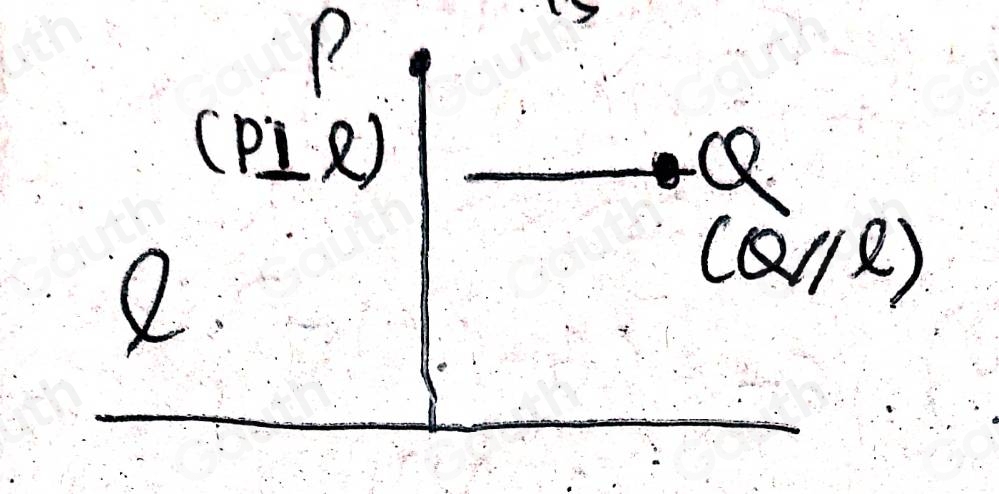 P
(P⊥l)
Q
(Q//l)
l